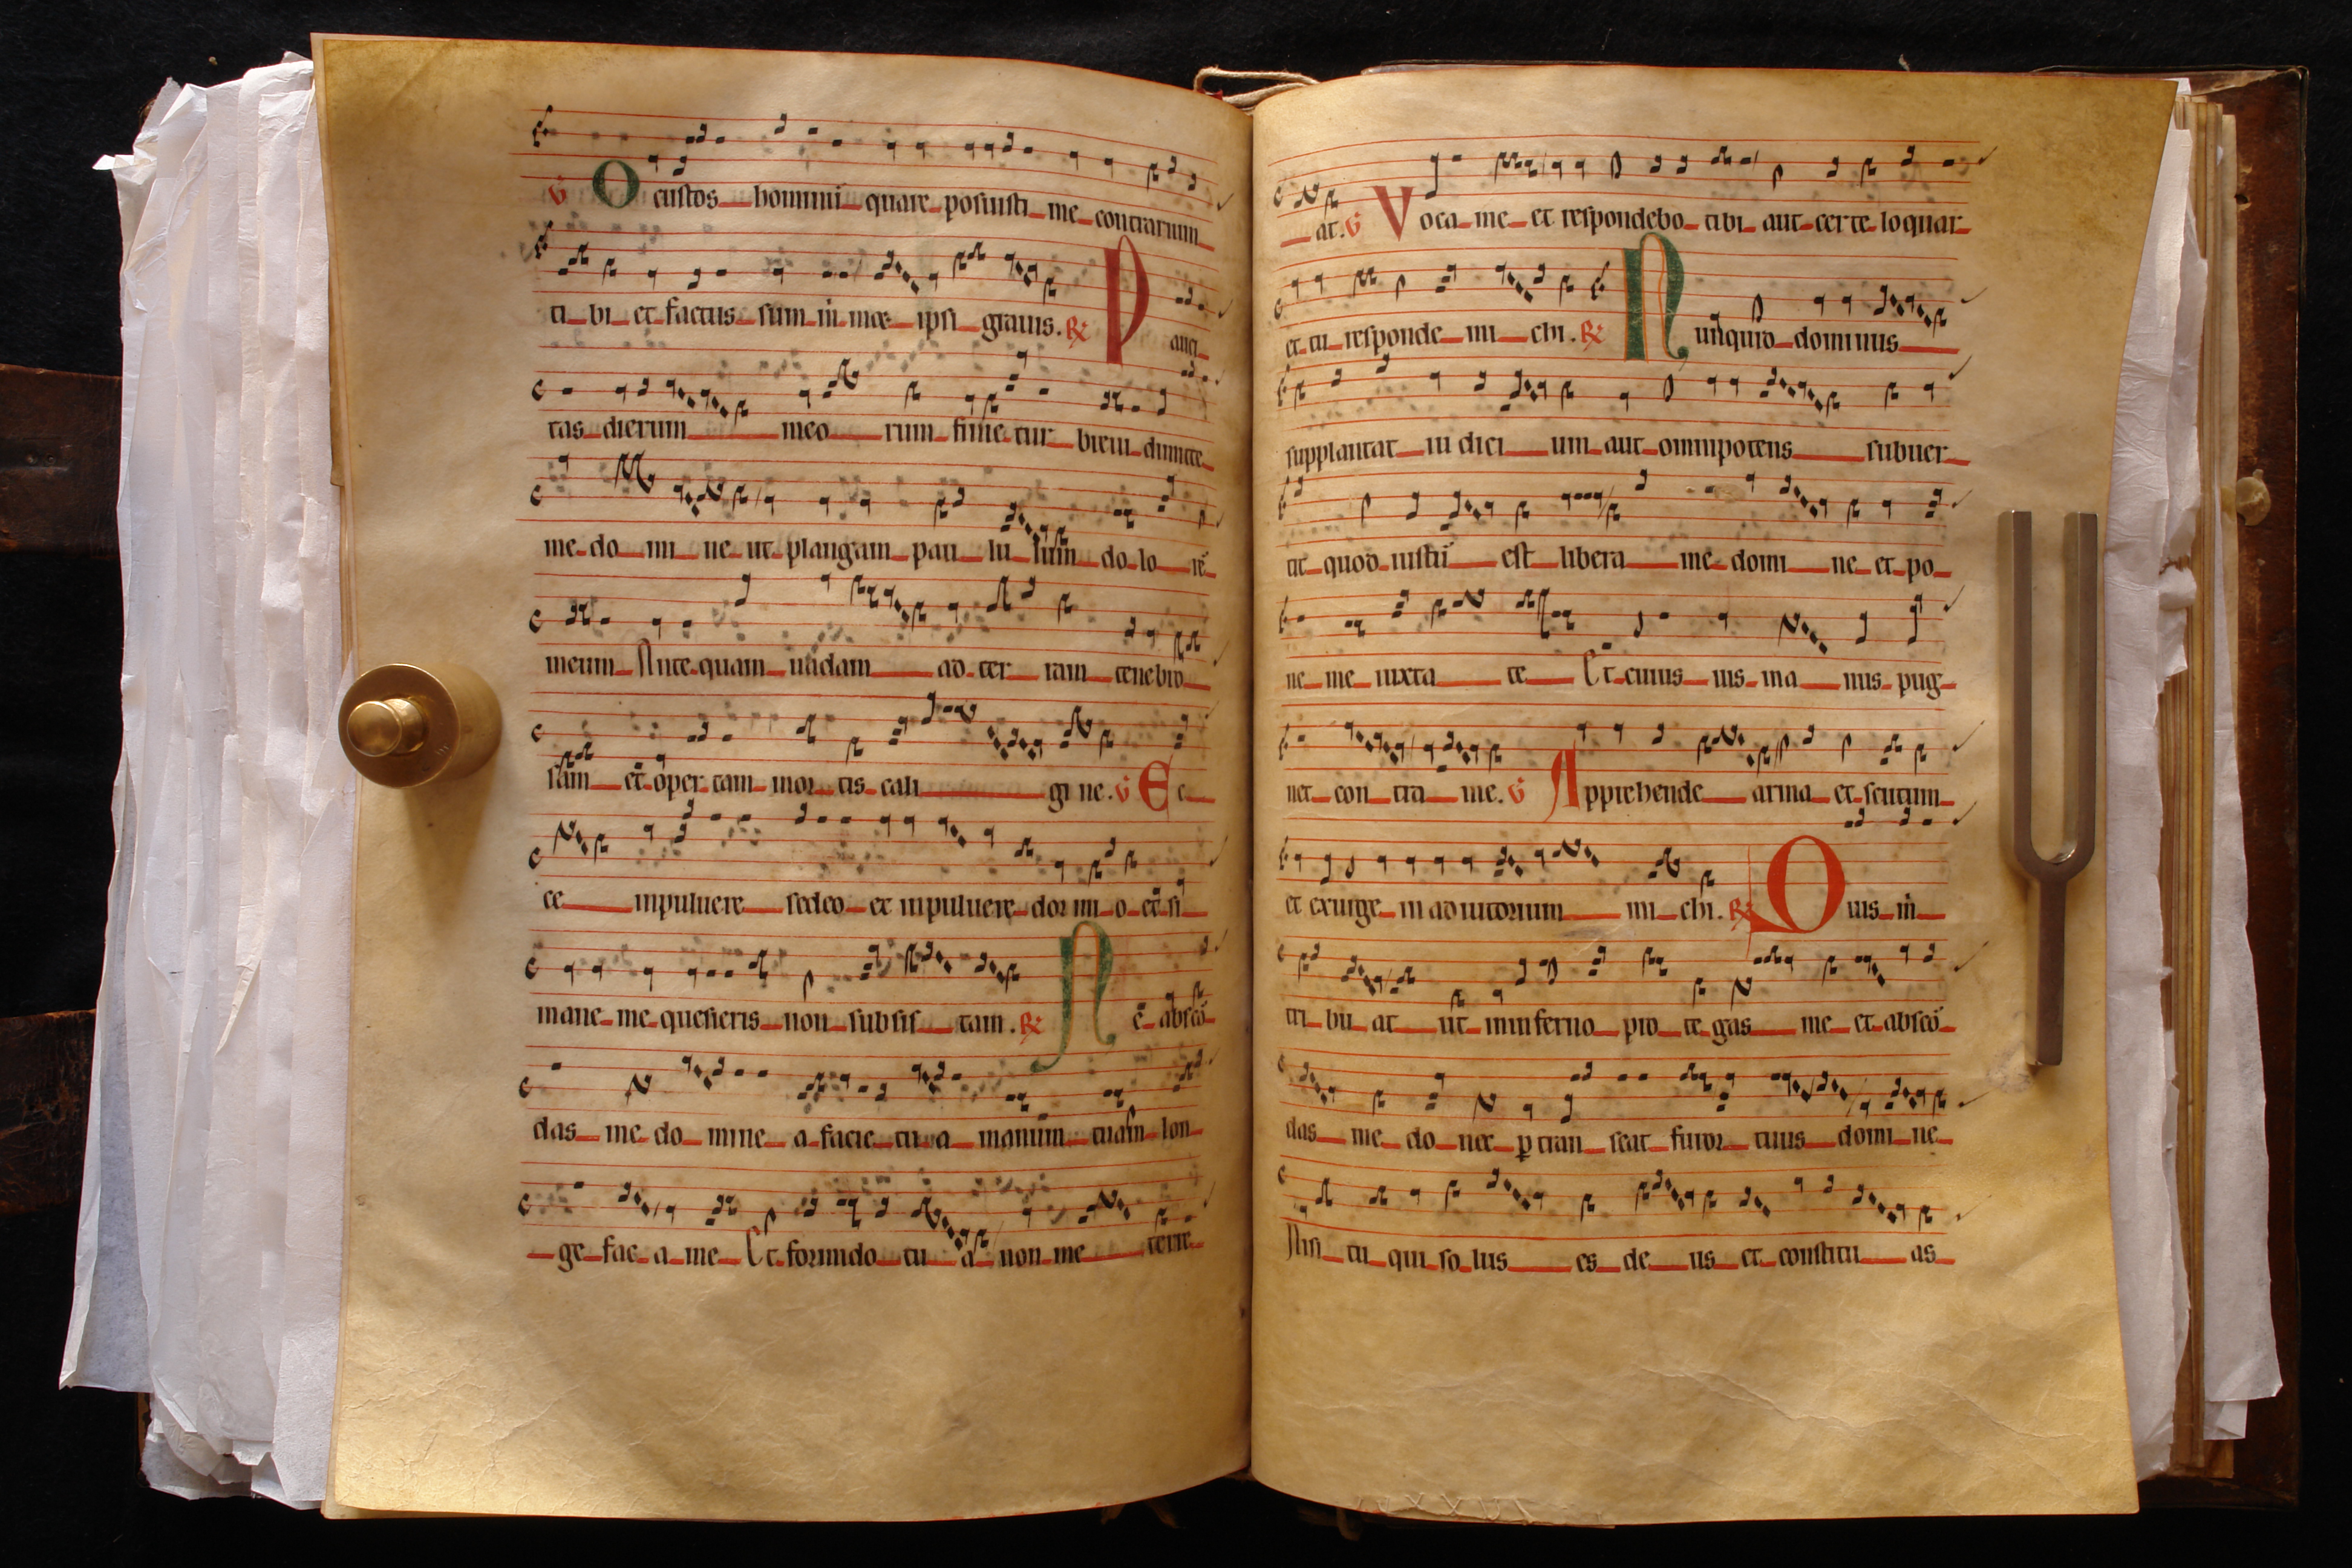 ℣ O custos hominū quare posuisti me contrarium
ti bi et factus sum m̄ met ipsi grauis. ℟ P auci
tas dierum meo rum finie tur breui dimitte
me do mi ne ut plangam pau lu lum do lo rē
meum Ante quam uadam ad ter ram tenebro
sam et oper tam mor tis cali gi ne. ℣ E c
ce inpuluere sedeo et inpuluere dor mi o et si
mane me quesieris non subsis tam. ℟ N e abscō
das me do mine a facie tu a manum tuam lon
ge fac a me Et formido tu a non me terre
at. ℣ V oca me et respondebo tibi aut certe loquar
et tu responde mi chi. ℟ N unquid dominus
supplantat iu dici um aut omnipotens subuer
tit quod iustū est libera me domi ne et po
ne me iuxta te Et cuius uis ma nus pug
net con tra me. ℣ A pprehende arma et scutum
et exurge in adiutorium mi chi. ℟ Q uis m̄
tri bu at ut ininferno pro te gas me et abscō
das me do nec ꝑtran seat furor tuus domi ne
Nisi tu qui so lus es de us et constitu as